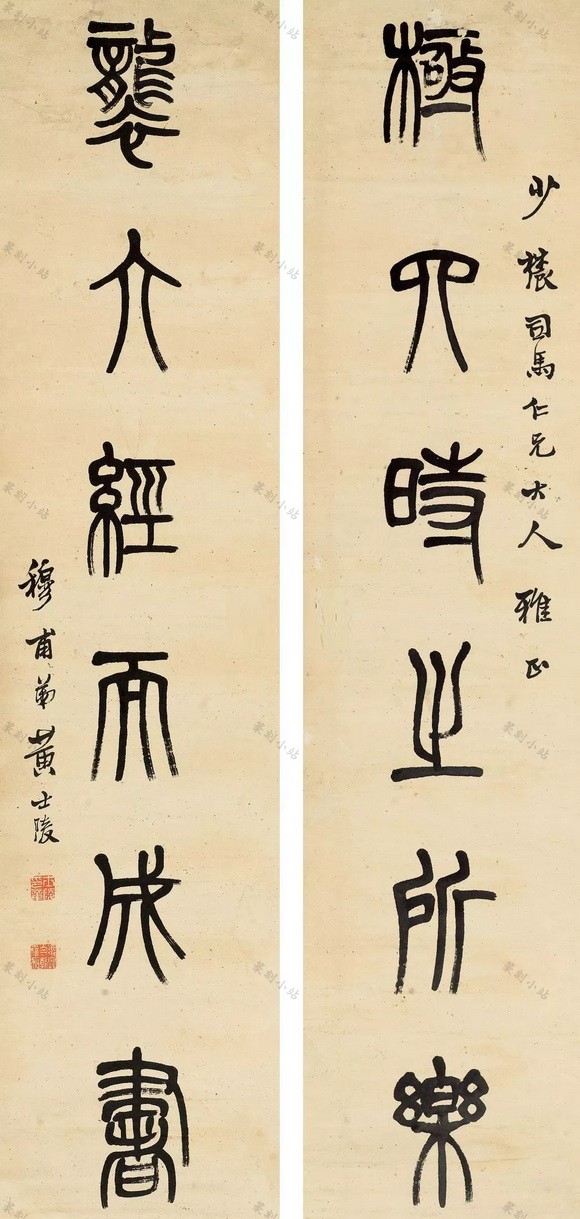 少穠司馬仁兄大人雅正
極四時之所樂
襲六經而成書
穆甫弟黃士陵
篆刻小站